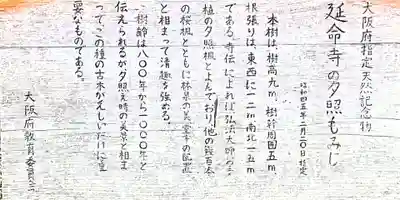 大阪府指定天然記念物
延命寺の夕照もみじ
昭和四五年二月二〇日指定
本樹は、樹高九m、樹幹周囲五m、
根張りは、東西に一二m南北一五m
である。寺伝によれば弘法大師の手
植の夕照楓とよんでおり、他の幾百本
の桜楓とともに林泉の美堂宇の配置
と相まって清趣を強める。
樹齢は八〇〇年から一〇〇〇年と
伝えられるが夕照え時の美景と相ま
って、この種の古木が乏しいだけに貴
重なものである。
大阪府教育委員会